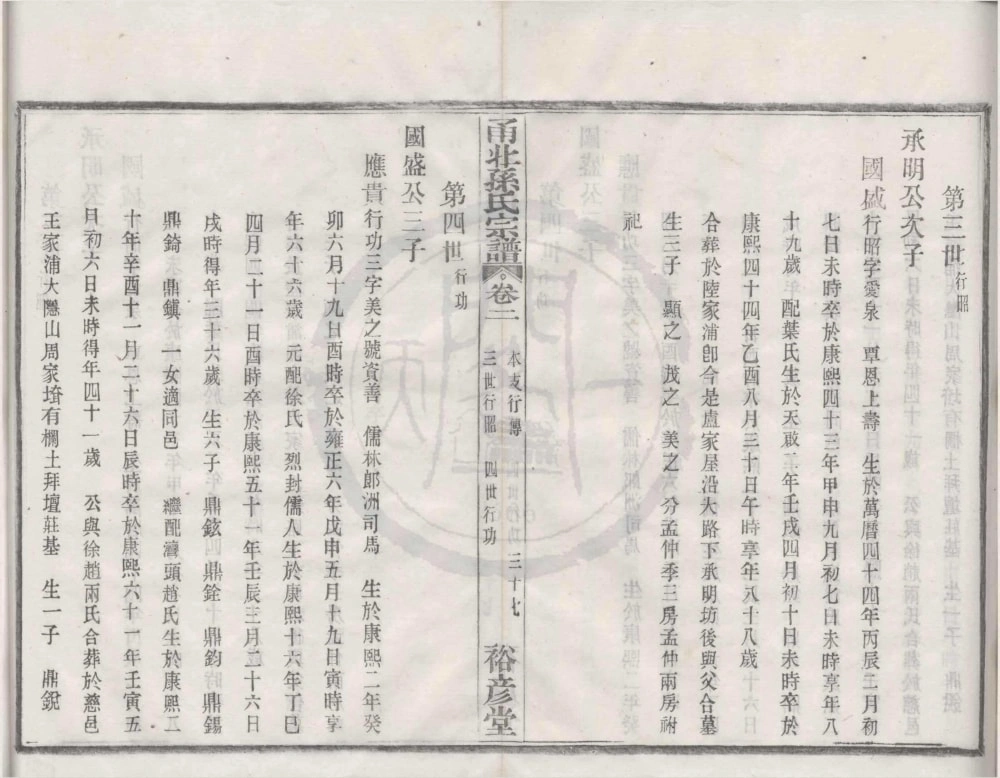 第三世行昭
承明公次子
國盛行昭字愛泉　覃恩上壽　生於萬曆四十四年丙辰二月初
七日未時卒於康熙四十三年甲申九月初七日未時享年八
十九歲　配葉氏生於天啟二年壬戌四月初十日未時卒於
康熙四十四年乙酉八月三十日午時享年八十八歲
合葬於陸家浦卽今是盧家屋沿大路下承明坊後與父合墓
生三子　顯之　茂之　美之　分孟仲季三房孟仲兩房祔
祀
甬壯孫氏宗譜　卷二　本支行傳　三世行昭　四世行功　三十七　裕彥堂
第四世行功
國盛公三子
應貴行功三字美之號資善　儒林郎洲司馬　生於康熙二年癸
卯六月十九日酉時卒於雍正六年戊申五月十九日寅時享
年六十六歲　元配徐氏　烈封儒人生於康熙十六年丁巳
四月二十一日酉時卒於康熙五十一年壬辰三月二十六日
戌時得年三十六歲　生六子　鼎鉉　鼎銓　鼎鈞　鼎錫
鼎錡　鼎鎮　一女適同邑　繼配瀆頭趙氏生於康熙二
十年辛酉十一月二十六日辰時卒於康熙六十一年壬寅五
月初六日未時得年四十一歲　公與徐趙兩氏合葬於慈邑
王家浦大隱山周家塔有欄土拜壇莊基　生一子　鼎銳